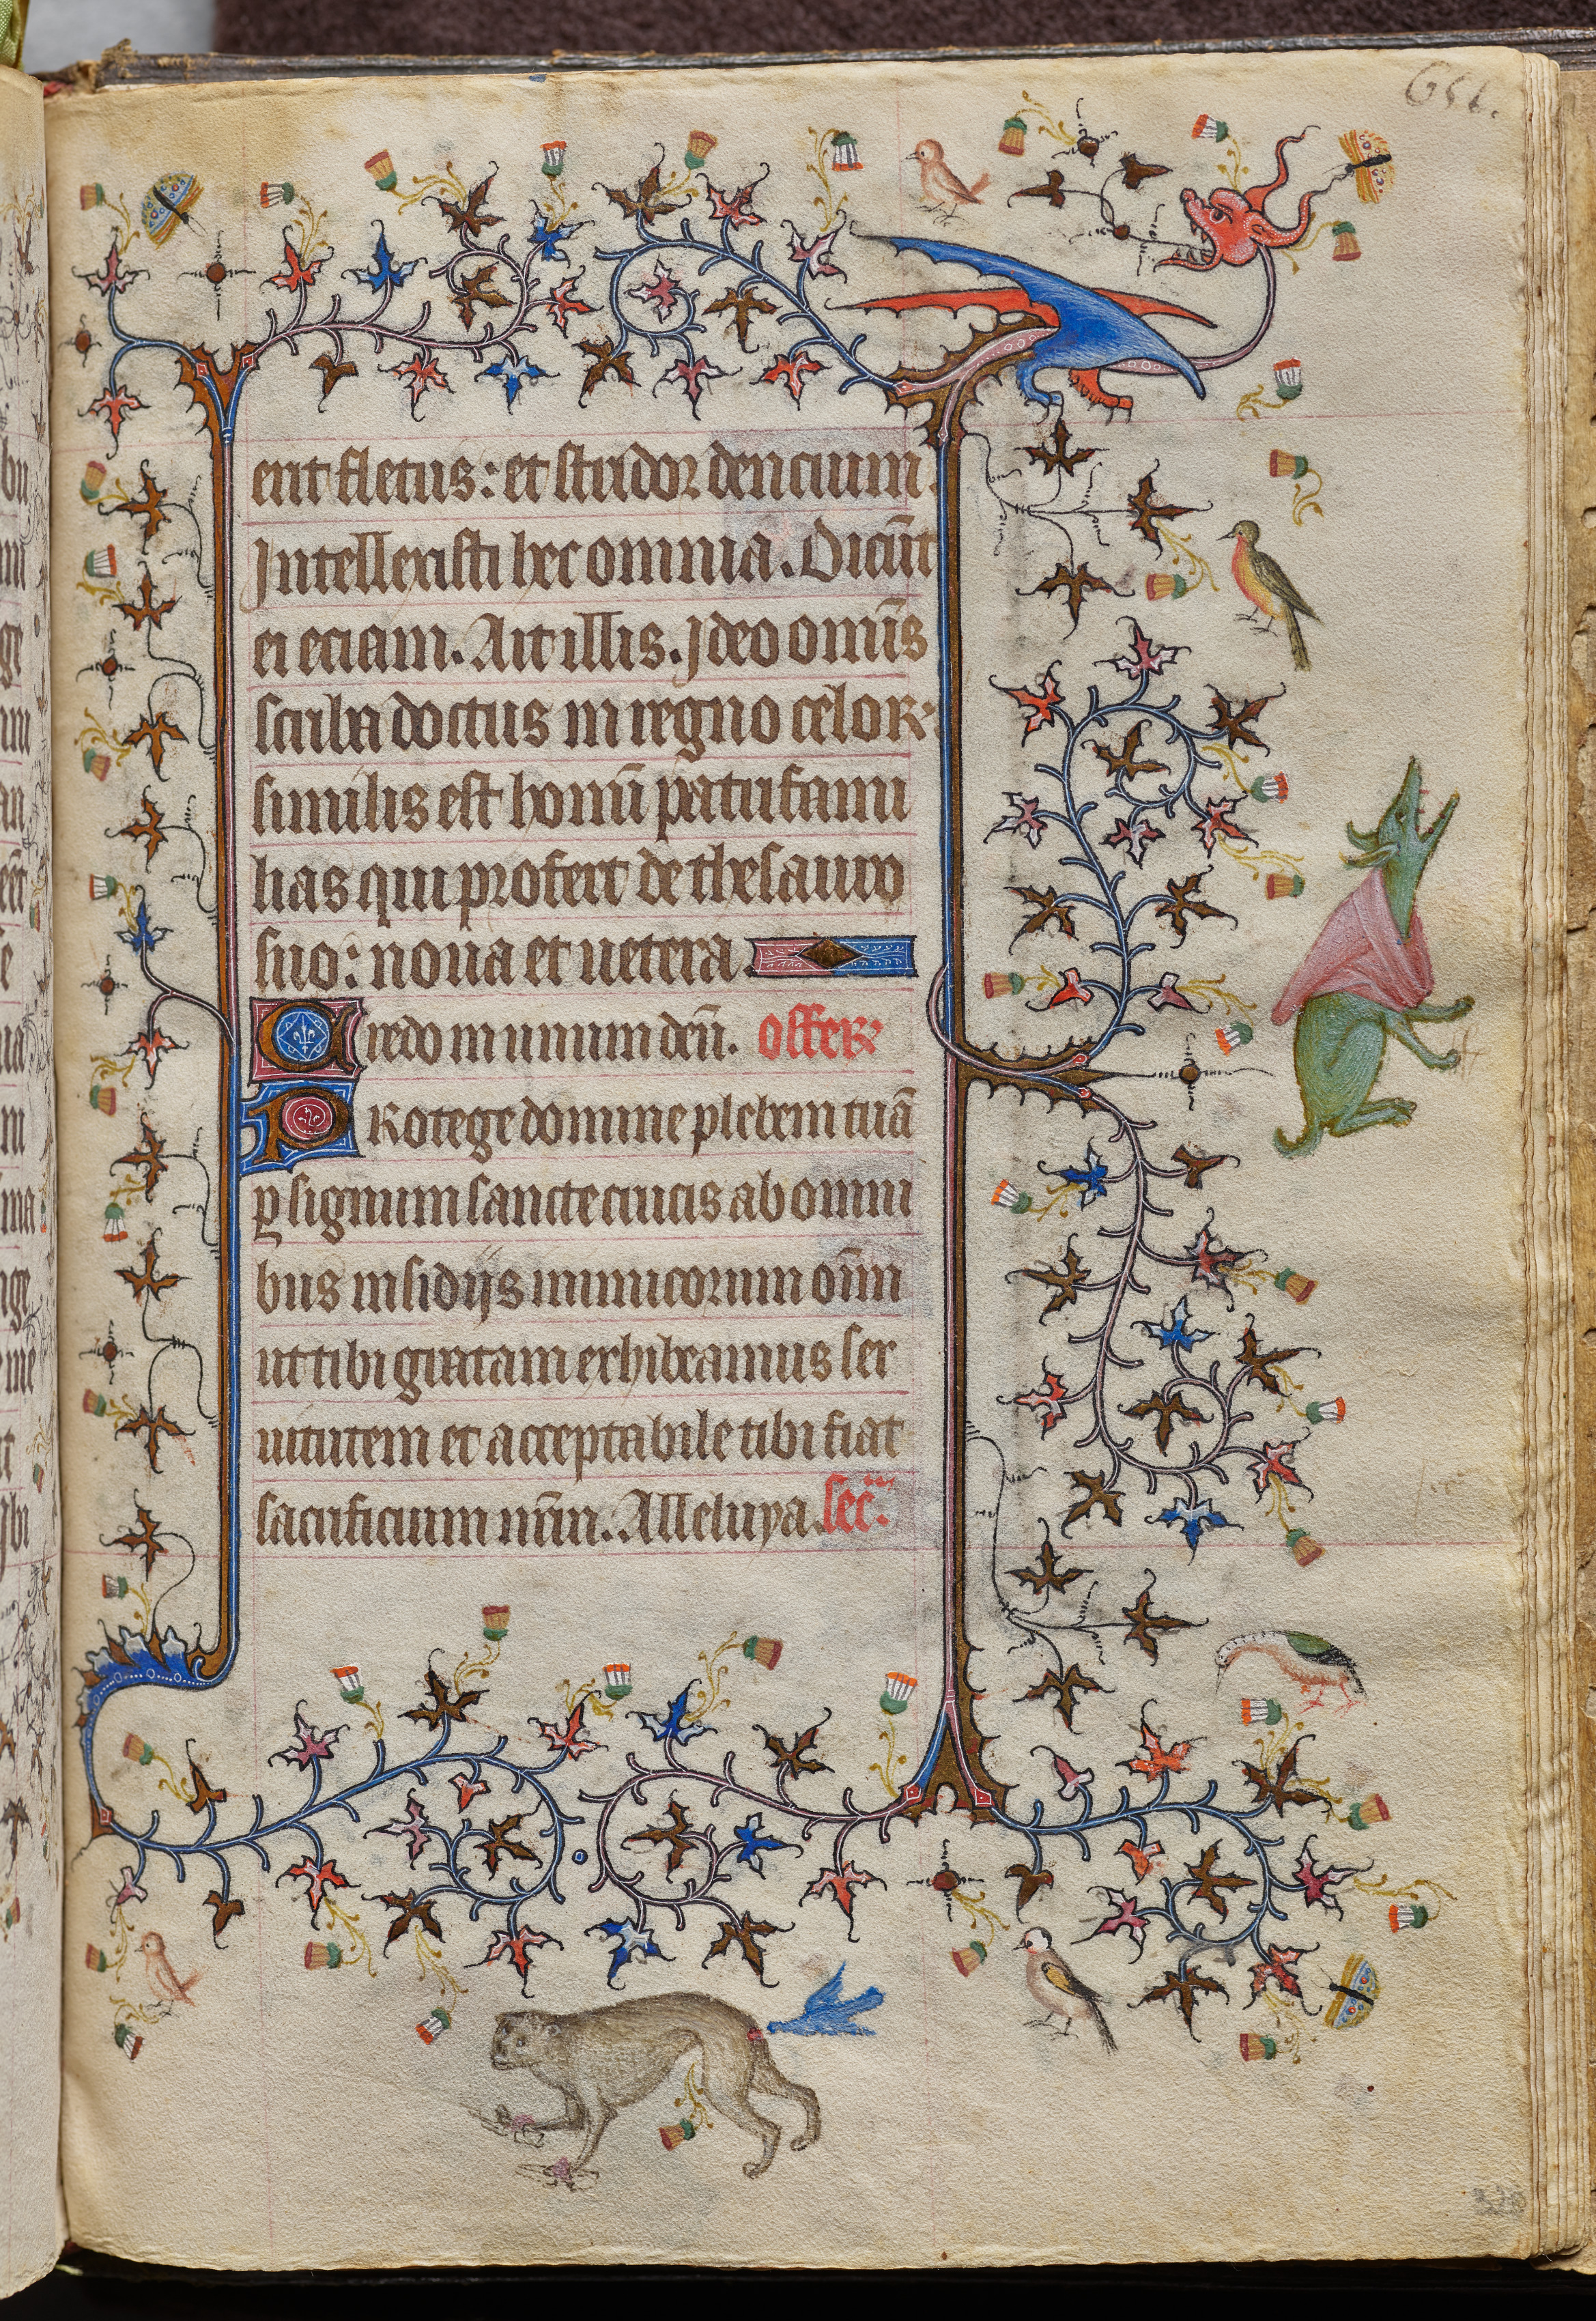 erit fletus: et stridor dencium.
Intellexisti hec omnia. Dicūt
ei eciam. Ait illis. Ideo omīs
scriba doctus in regno celoꝝ
similis est homī patrifami
lias qui profert de thesauro
suo: noua et uetera.
Credo in unum deū. offer
Protege domine plebem tuā
ꝑ signum sancte crucis ab omni
bus insidijs inimicorum oīm
ut tibi gratam exhibeamus ser
uitutem et acceptabile tibi fiat
sacrificium nr̄m. Alleluya. sec̄